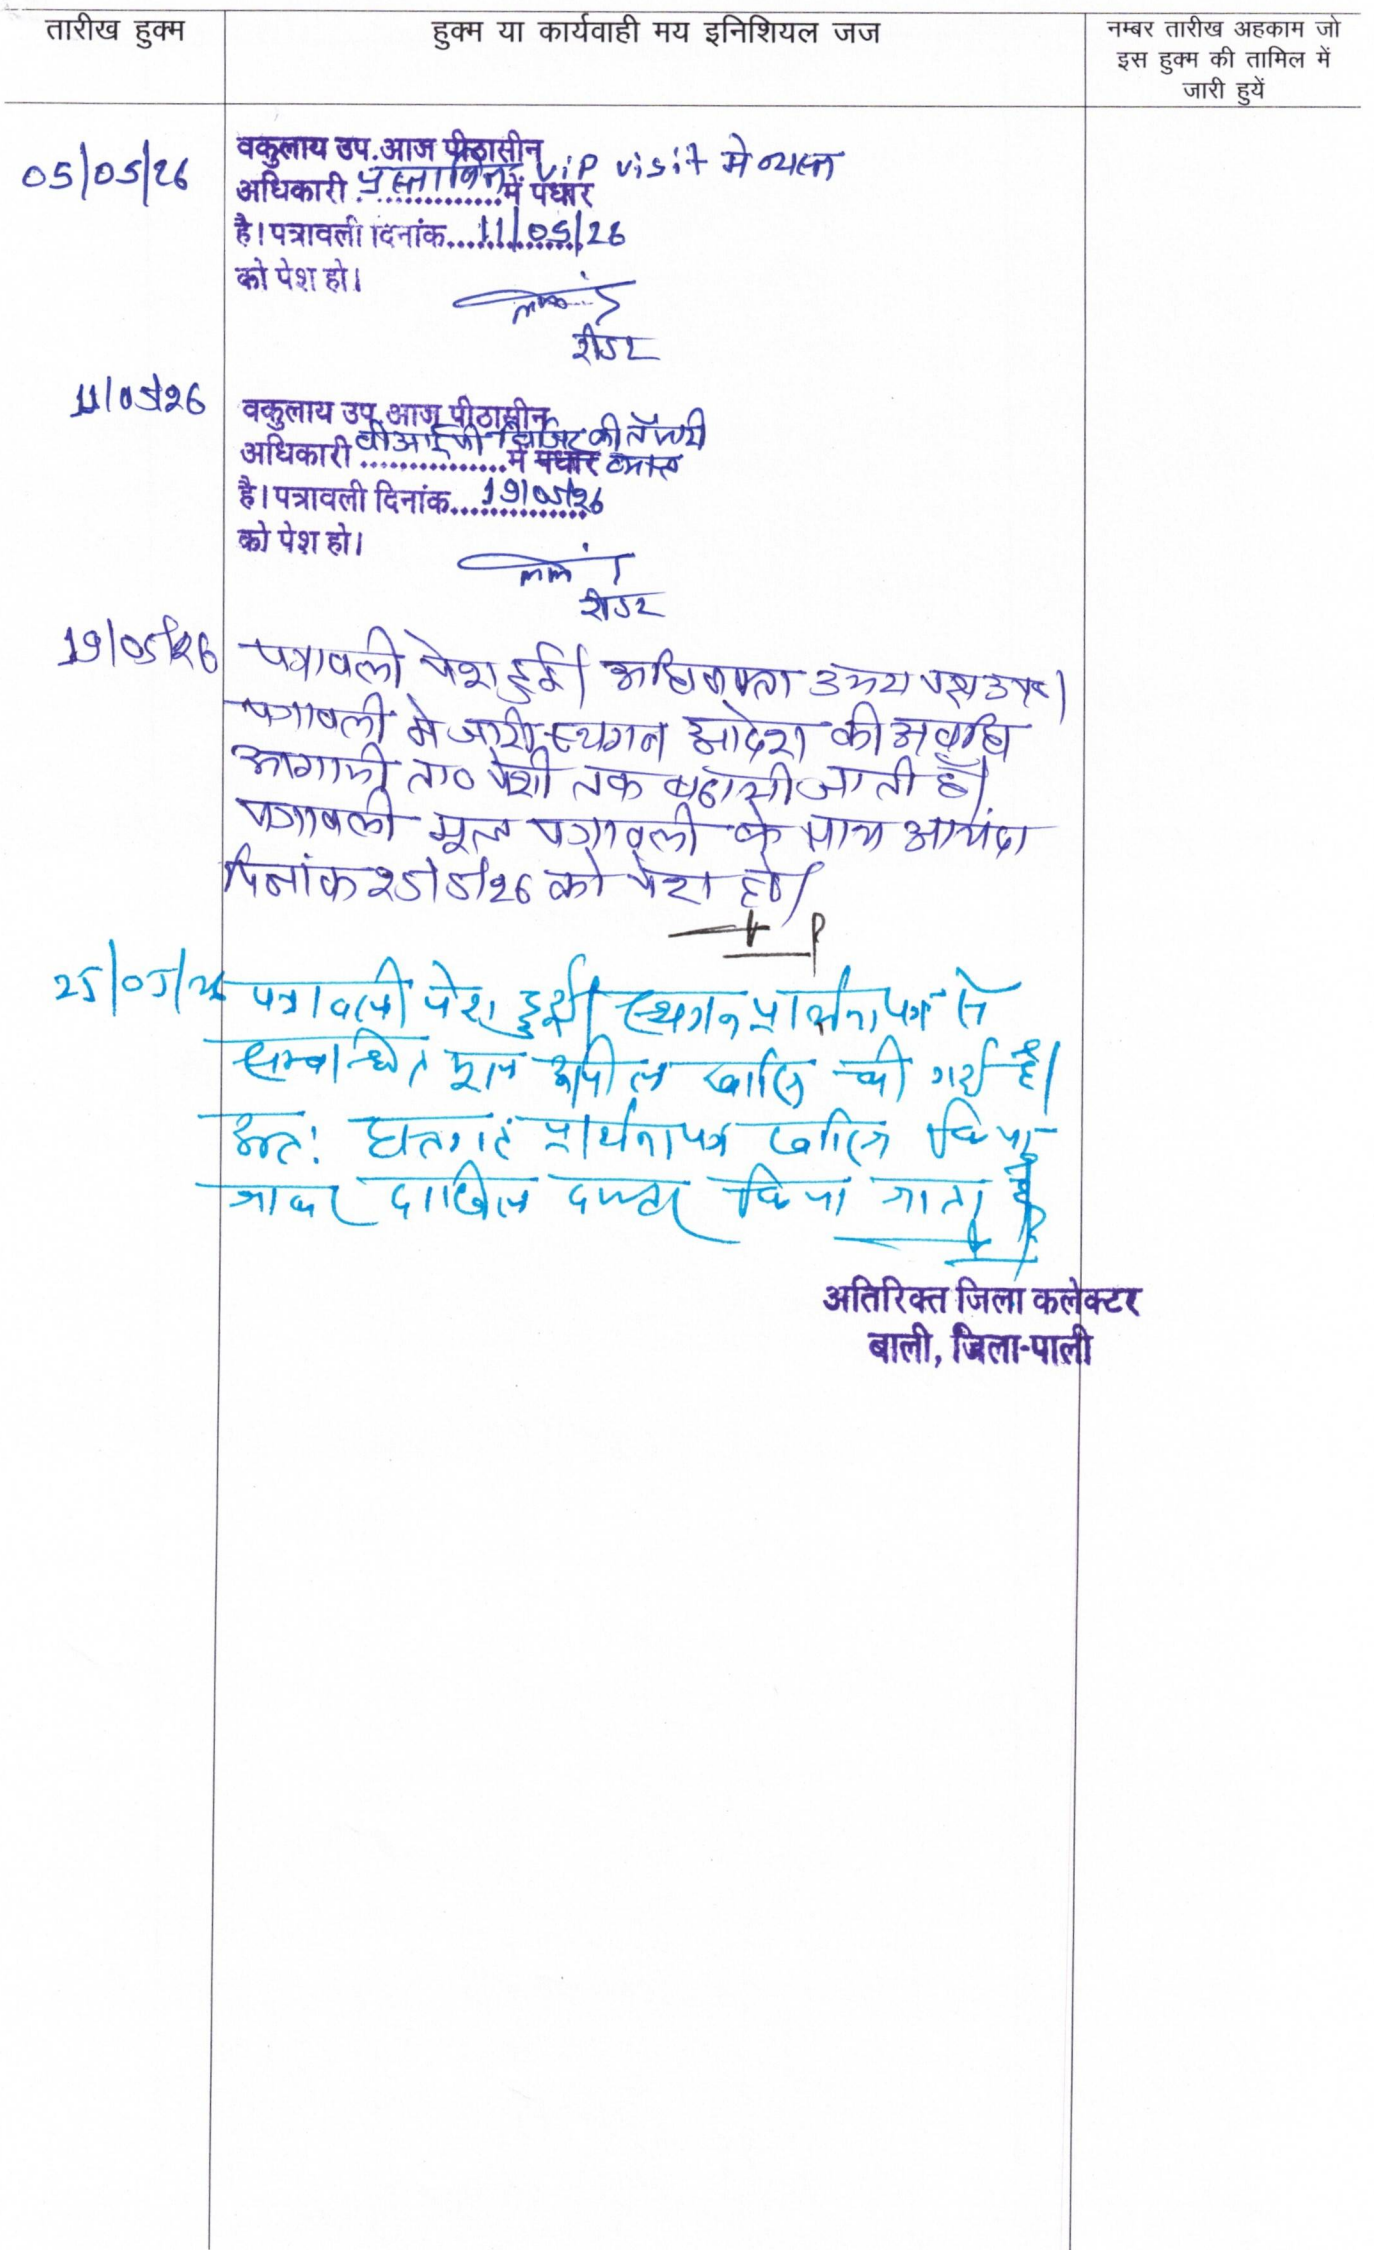 तारीख हुक्म
हुक्म या कार्यवाही मय इनिशियल जज
नम्बर तारीख अहकाम जो
इस हुक्म की तामिल में
जारी हुयें
05/05/26
वकुलाय उप.आज पीठासीन
अधिकारी प्रस्तावित VIP visit मे व्यस्त में पधार
है। पत्रावली दिनांक 11/05/26
को पेश हो।
रीडर
11/05/26
वकुलाय उप.आज पीठासीन
अधिकारी वीआईपी विजिट की तैयारी में पधार व्यस्त
है। पत्रावली दिनांक 19/05/26
को पेश हो।
रीडर
19/05/26
पत्रावली पेश हुई। अधिवक्ता उभय पक्ष उप०।
पत्रावली मे जारी स्थगन आदेश की अवधि
आगामी ता० पेशी तक बढायी जाती है।
पत्रावली मूल पत्रावली के साथ आयंदा
दिनांक 25/5/26 को पेश हो।
25/05/26
पत्रावली पेश हुई। स्थगन प्रार्थनापत्र से
सम्बन्धित मूल अपील खारिज की गई है।
अतः हस्तगत प्रार्थनापत्र खारिज किया
जाकर दाखिल दफ्तर किया जाता है
अतिरिक्त जिला कलेक्टर
बाली, जिला-पाली